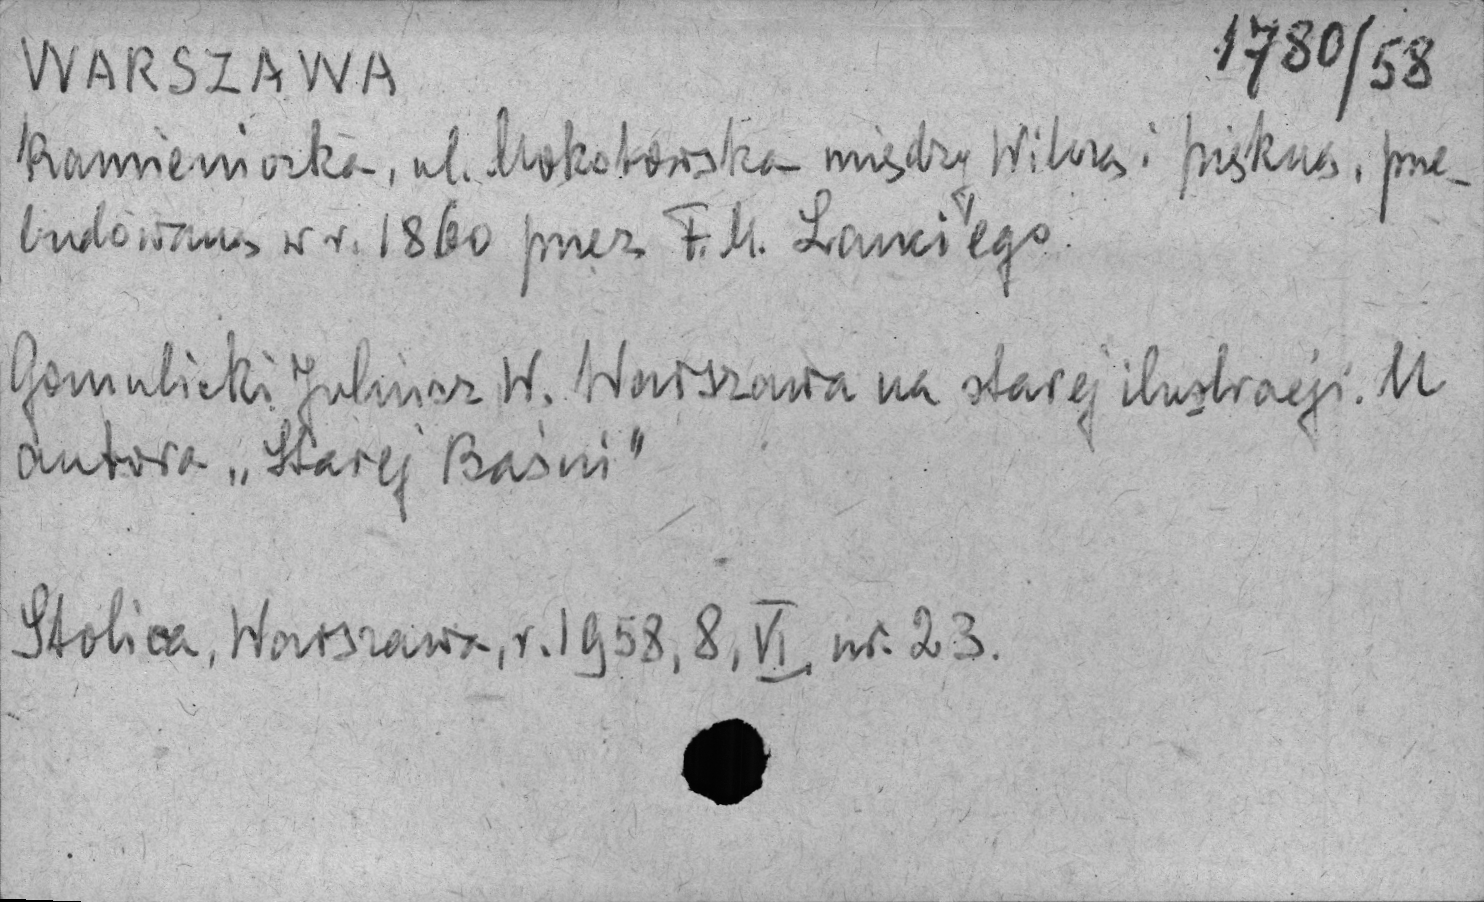 WARSZAWA
1780/58
Kamieniczka, ul. Mokotowska między Wilczą i Piękną, prze-
budowana w r. 1860 przez F. M. Lanci'ego.
Gomulicki Juliusz W. Warszawa na starej ilustracji. U
autora „Starej Baśni"
Stolica, Warszawa, r. 1958, 8, VI, nr. 23.